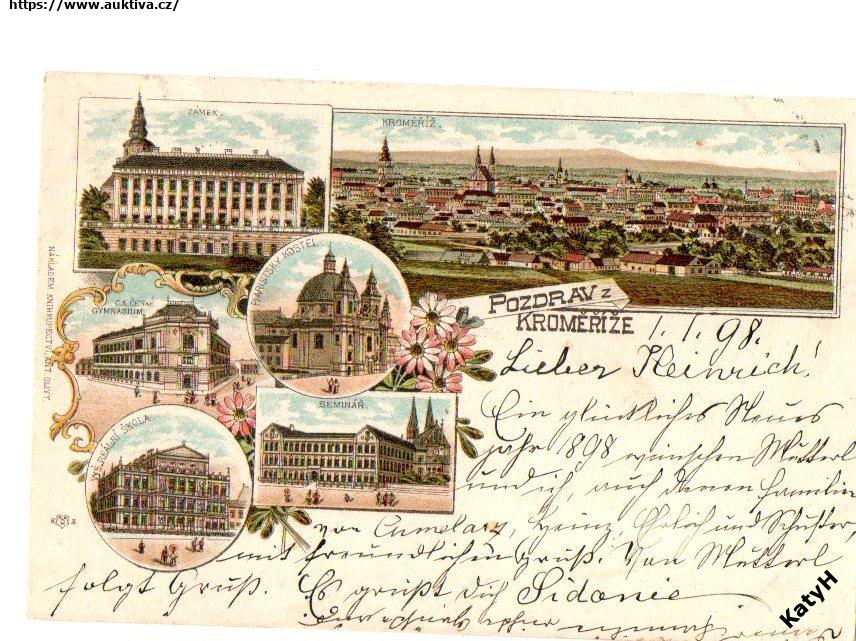 https://www.auktiva.cz/
ZÁMEK.
KROMĚŘÍŽ.
FARNÍSKÝ KOSTEL
NÁKLADEM KNIHKUPECTVÍ ZÁT OLIVY.
C.K. ČESKÉ
GYMNASIUM.
POZDRAV z
KROMĚŘÍŽE
1./1. 98.
Lieber Heinrich!
SEMINÁŘ.
VYŠ. REÁLNÍ ŠKOLA
Ein glückliches Neues
Jahr 1898 wünschen Mutterl
und ich, auch denen Familien
von Cumelarz, Heinz, Ehrlich und Schuster,
mit freundlichen Gruß. Von Mutterl
folgt Gruß. Es grüßt dich Sidonie
K 3.
KatyH